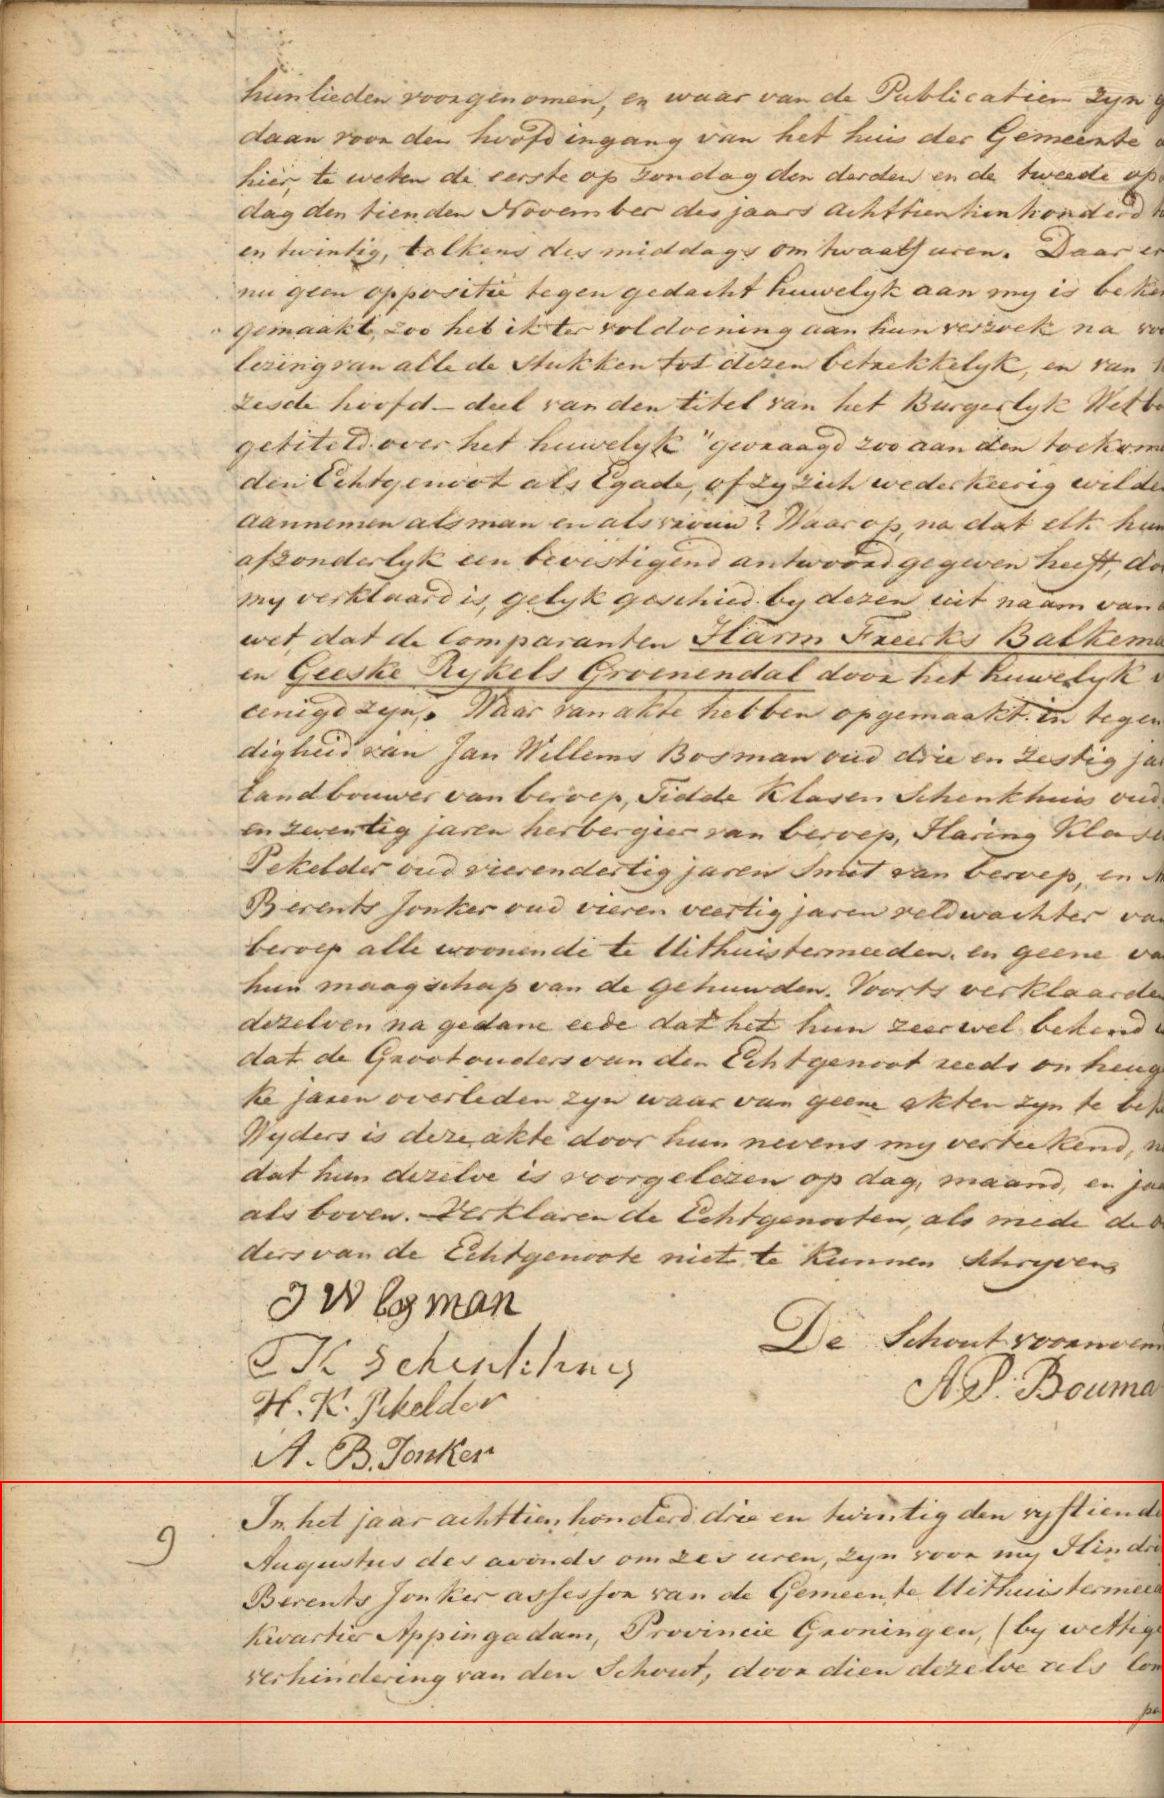 hunlieden voorgenomen, en waar van de Publicatien zyn g
daan voor den hoofd ingang van het huis der Gemeente a
hier, te weten de eerste op zondag den derden en de tweede op
dag den tienden November des jaars achttienhonderd
en twintig, telkens des middags om twaalf uren. Daar er
nu geen oppositie tegen gedacht huwelyk aan my is beken
gemaakt, zoo heb ik ter voldoening aan hun verzoek na voo
lezing van alle de stukken tot dezen betrekkelyk, en van h
zesde hoofd-deel van den titel van het Burgerlyk Wetbo
getiteld over het huwelyk" gevraagd zoo aan den toekome
den Echtgenoot als Egade, of zy zich wederkeerig wilde
aannemen als man en als vrouw? Waar op, na dat elk hun
afzonderlyk een bevestigend antwoord gegeven heeft, do
my verklaard is, gelyk geschied by dezen uit naam van d
wet, dat de Comparanten Harm Freerks Balkema
en Geeske Rykels Groenendal door het huwelyk v
eenigd zyn. Waar van akte hebben opgemaakt in tegen
digheid van Jan Willems Bosman oud drie en zestig ja
Landbouwer van beroep, Tidde Klasen Schenkhuis oud
en zeventig jaren herbergier van beroep, Haring Klase
Pekelder oud vierendertig jaren Smit van beroep, en
Berents Jonker oud vieren veertig jaren veldwachter va
beroep alle woonende te Uithuistermeeden. en geene va
hun maagschap van de gehuwden. Voorts verklaarde
dezelven na gedane eede dat het hun zeer wel bekend
dat de Grootouders van den Echtgenoot reeds on heug
ke jaren overleden zyn waar van geene akten zyn te be
Wyders is deze akte door hun nevens my verteekend, n
dat hun dezelve is voorgelezen op dag, maand, en jaa
als boven. Verklaren de Echtgenooten, als mede de o
ders van de Echtgenoote niet te kunnen schryven
J W Bosman
T K Schenkhuis
De Schout voornoem
H. K. Pekelder
A. P. Bouma
A. B. Jonker
9
In het jaar achttienhonderd drie en twintig den vyftiende
Augustus des avonds om zes uren, zyn voor my Hindri
Berents Jonker assessor van de Gemeente Uithuistermeed
Kwartier Appingadam, Provincie Groningen, (by wettige
verhindering van den Schout, door dien dezelve als Com
pa